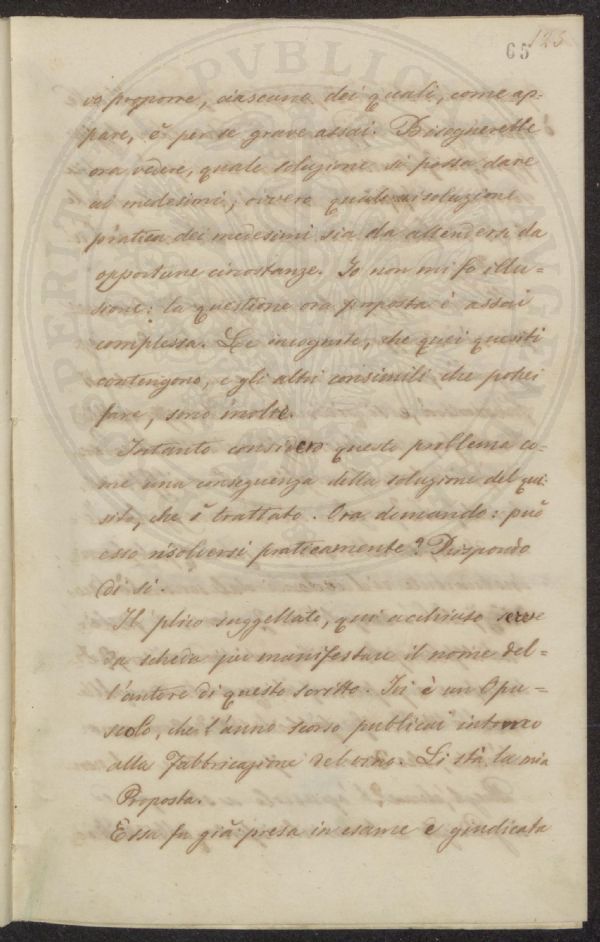 65 123
vo proporre, ciascuno dei quali, come ap=
pare, è per se grave assai. Bisognerebbe
ora vedere, quale soluzione si possa dare
ai medesimi, ovvero quale risoluzione
pratica dei medesimi sia da attendersi da
opportune circostanze. Io non mi fo illu=
sione: la questione ora proposta è assai
complessa. Le incognite, che quei quesiti
contengono, e gli altri consimili, che potrei
fare, sono molte.
Intanto considero questo problema co=
me una conseguenza della soluzione del que=
sito, che è trattato. Ora domando: può
esso risolversi praticamente? Rispondo
di si.
Il plico suggellato, qui acchiuso serve
da scheda per manifestare il nome del=
l'autore di questo scritto. Ivi è un Opu=
scolo, che l'anno scorso publicai intorno
alla Fabbricazione del vino. Li stà la mia
Proposta.
Essa fu già presa in esame e giudicata